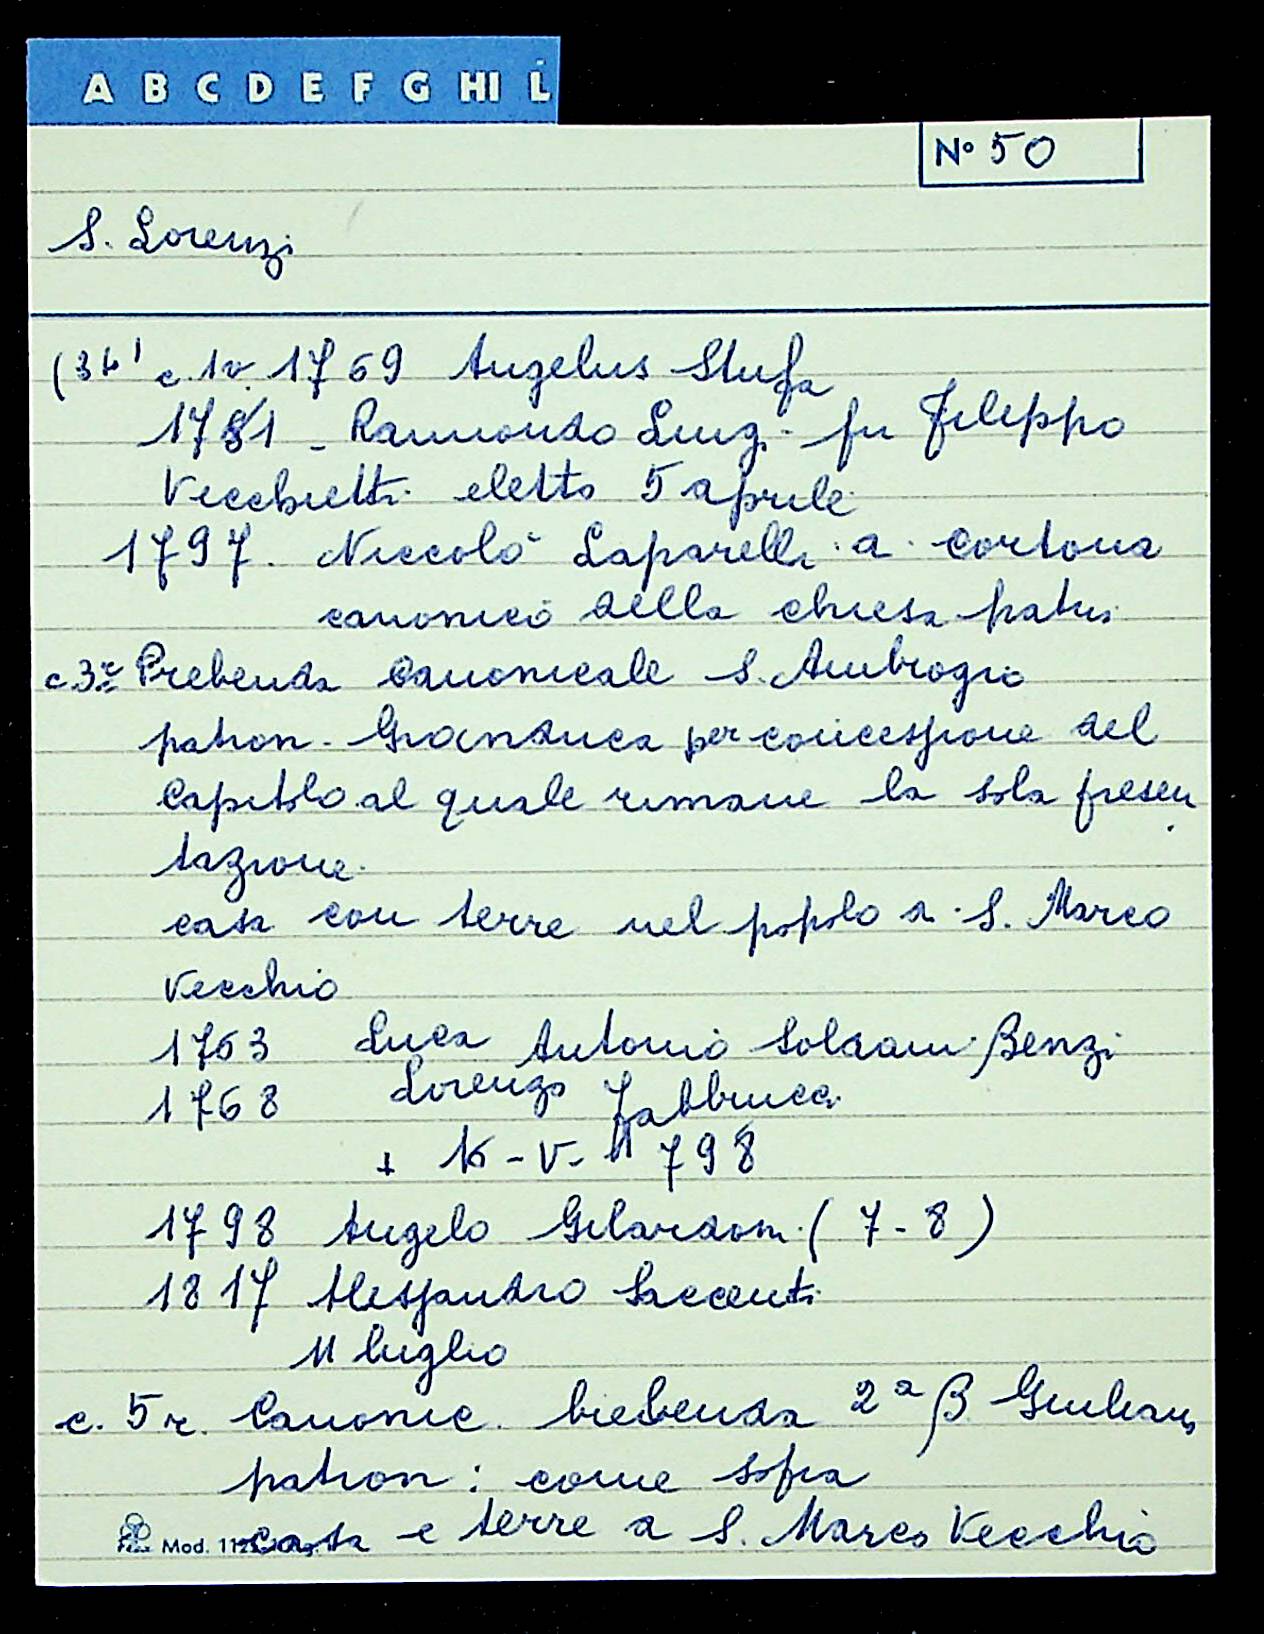 A B C D E F G HI L
N° 50
S. Lorenzi
c. 1v. 1769 Angelus Stufa
1781 - Raimondo Luig. fu Filippo
Vecchietti eletto 5 aprile
1797. Niccolò Laparelli a Cortona
canonico della chiesa
c 3r Prebenda Canonicale S. Ambrogio
patron. Granduca per concessione del
Capitolo al quale rimane la sola presen
tazione.
casa con terre nel popolo a S. Marco
Vecchio
1763 Luca Antonio Soldani Benzi
1768 Lorenzo Fabbrucci
+ 16 - V - 1798
1798 Angelo Gilardoni (7-8)
1817 Alessandro Saccenti
11 luglio
c. 5r. Canonic. 2ª β Giuliani
patron: come sopra
casa e terre a S. Marco Vecchio
Mod.